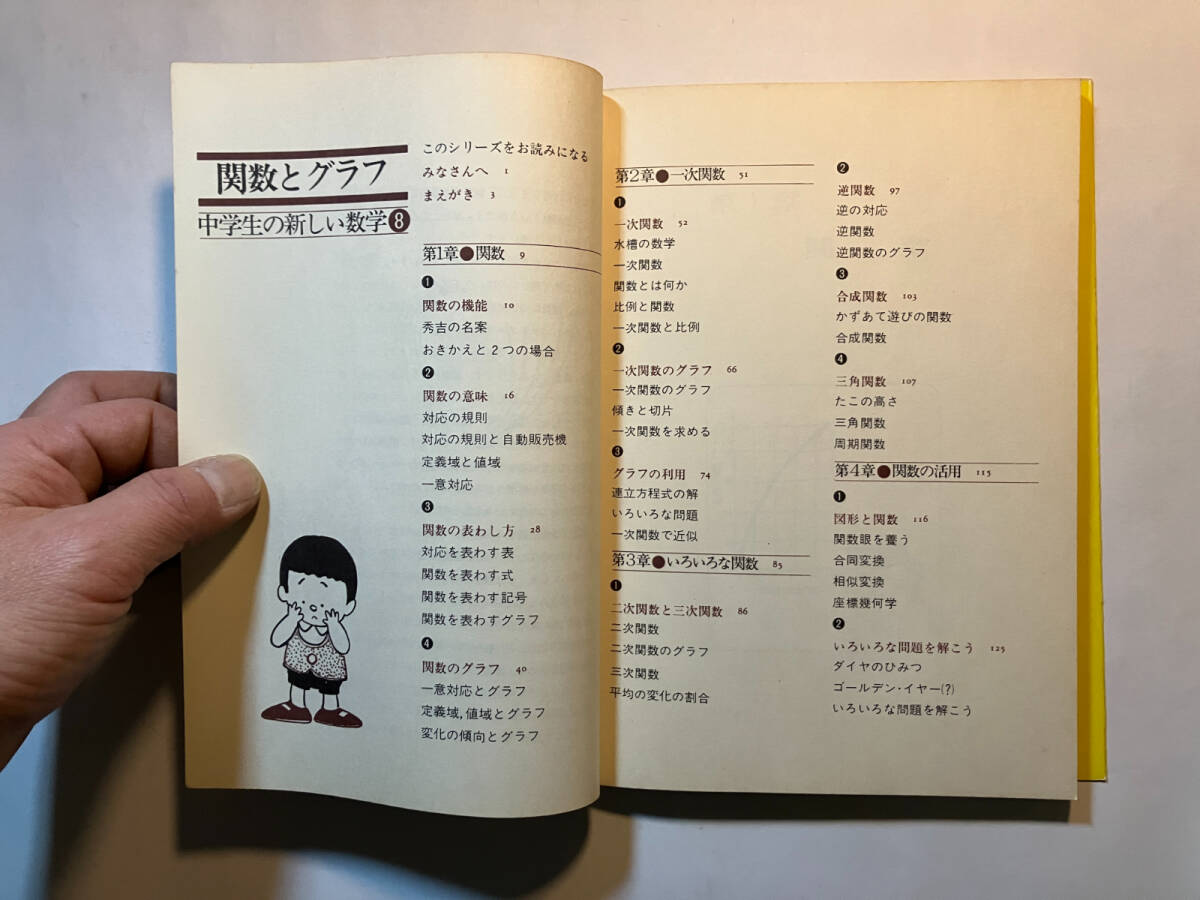 関数とグラフ
中学生の新しい数学❽
このシリーズをお読みになる
みなさんへ 1
まえがき 3
第1章●関数 9
❶
関数の機能 10
秀吉の名案
おきかえと2つの場合
❷
関数の意味 16
対応の規則
対応の規則と自動販売機
定義域と値域
一意対応
❸
関数の表わし方 28
対応を表わす表
関数を表わす式
関数を表わす記号
関数を表わすグラフ
❹
関数のグラフ 40
一意対応とグラフ
定義域,値域とグラフ
変化の傾向とグラフ
第2章●一次関数 51
❶
一次関数 52
水槽の数学
一次関数
関数とは何か
比例と関数
一次関数と比例
❷
一次関数のグラフ 66
一次関数のグラフ
傾きと切片
一次関数を求める
❸
グラフの利用 74
連立方程式の解
いろいろな問題
一次関数で近似
第3章●いろいろな関数 85
❶
二次関数と三次関数 86
二次関数
二次関数のグラフ
三次関数
平均の変化の割合
❷
逆関数 97
逆の対応
逆関数
逆関数のグラフ
❸
合成関数 103
かずあて遊びの関数
合成関数
❹
三角関数 107
たこの高さ
三角関数
周期関数
第4章●関数の活用 115
❶
図形と関数 116
関数眼を養う
合同変換
相似変換
座標幾何学
❷
いろいろな問題を解こう 125
ダイヤのひみつ
ゴールデン・イヤー(?)
いろいろな問題を解こう